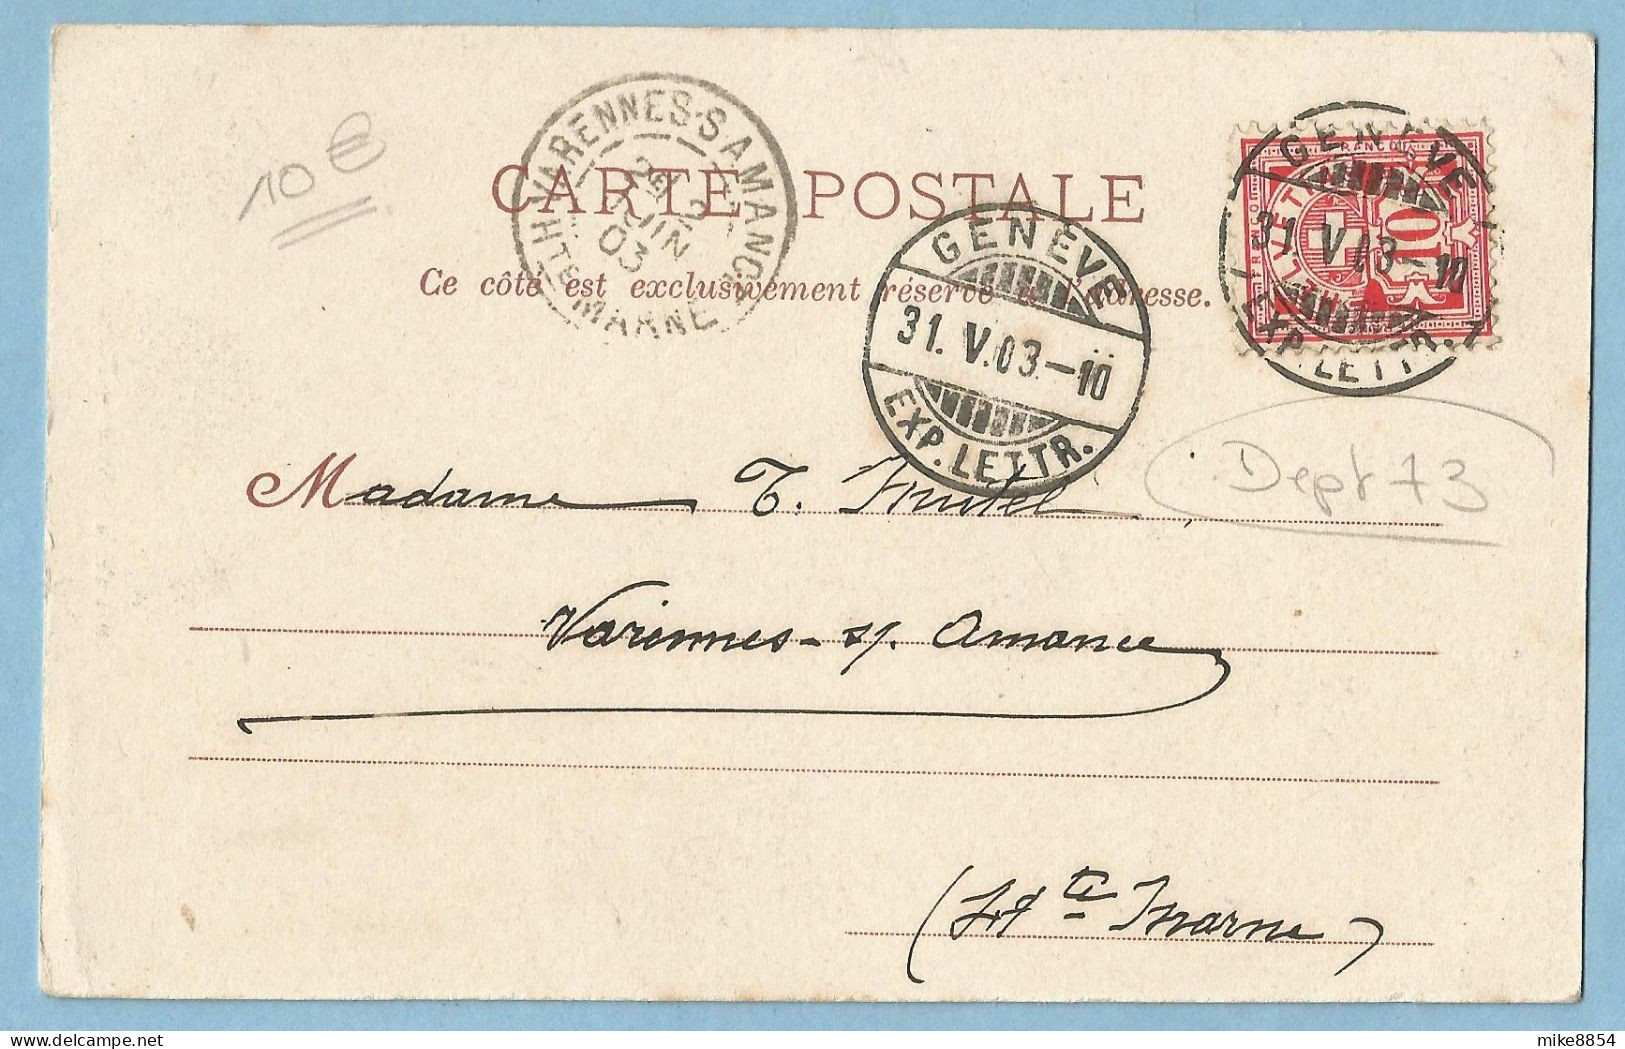 10 €
VARENNES-S-AMANCE
2
JUIN
03
HTE MARNE
CARTE POSTALE
Ce côté est exclusivement réservé à l'adresse.
GENÈVE
31. V. 03.–10
EXP. LETTR.
GENÈVE
31. V. 03–10
EXP. LETTR.
FRANCO
HELVETIA
10
Dept 73
Madame T.
Varennes-s/. Amance
(Hte Marne)
mike8854